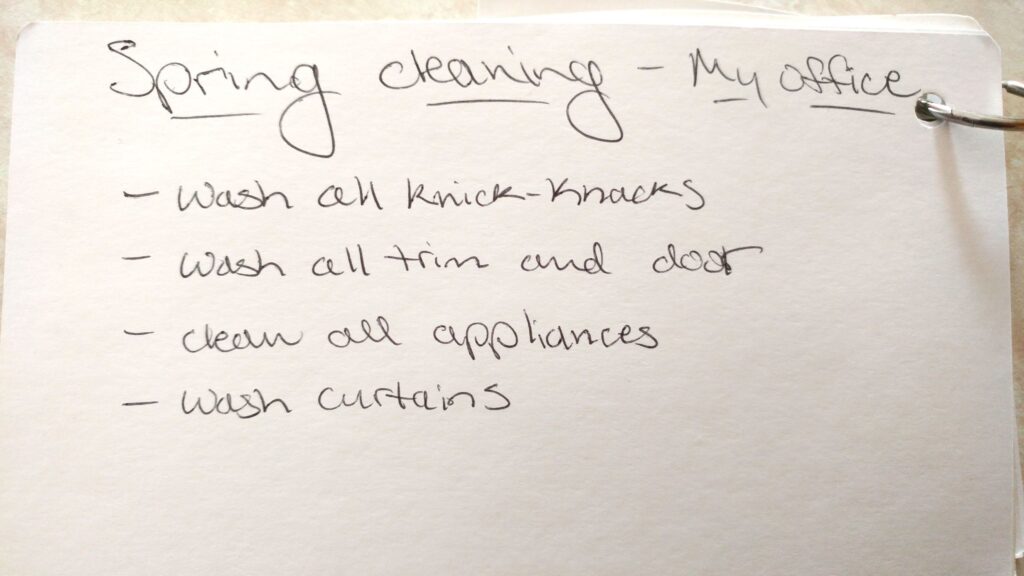 Spring cleaning - My office
- wash all knick-knacks
- wash all trim and door
- clean all appliances
- wash curtains